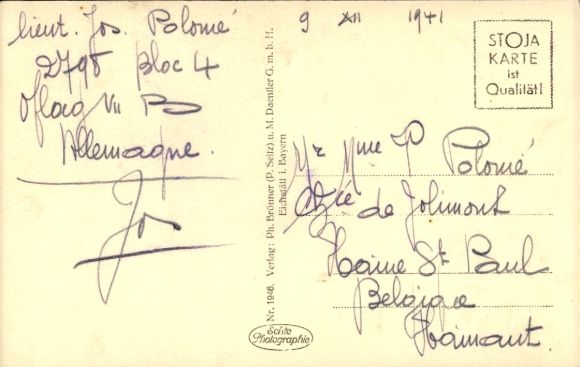 lieut. Jos Polomé
Bloc 4
Oflag VII B
Allemagne.
Jos
9 XII 1941
STOJA
KARTE
ist
Qualität!
Nr. 1946. Verlag: Ph. Brönner (P. Seitz) u. M. Daentler G. m. b. H.
Eichstätt i. Bayern
Echte
Photographie
Mr Mme P Polomé
de Jolimont
Haine St Paul
Belgique
Hainaut.